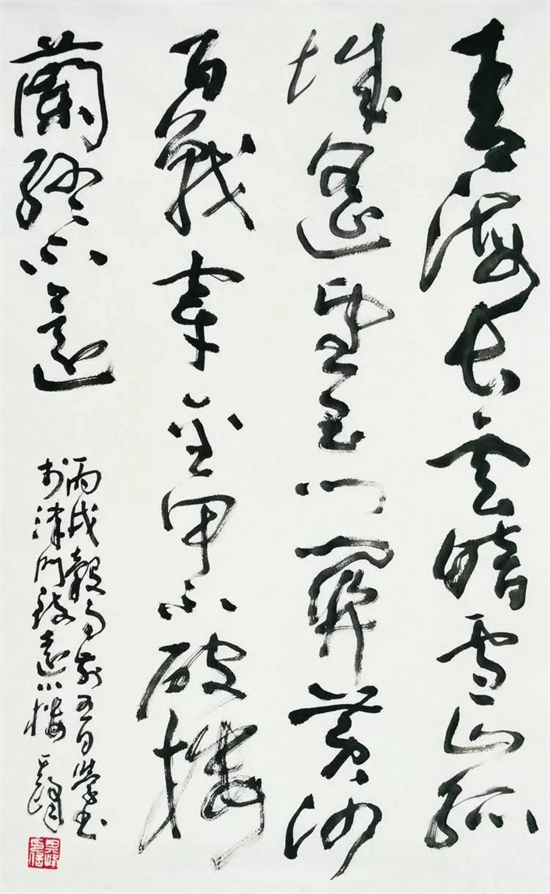 青海長云暗雪山孤
城遥望玉門關黄沙
百戰穿金甲不破樓
蘭終不還
丙戌穀雨前五日書
於津門致遠小樓